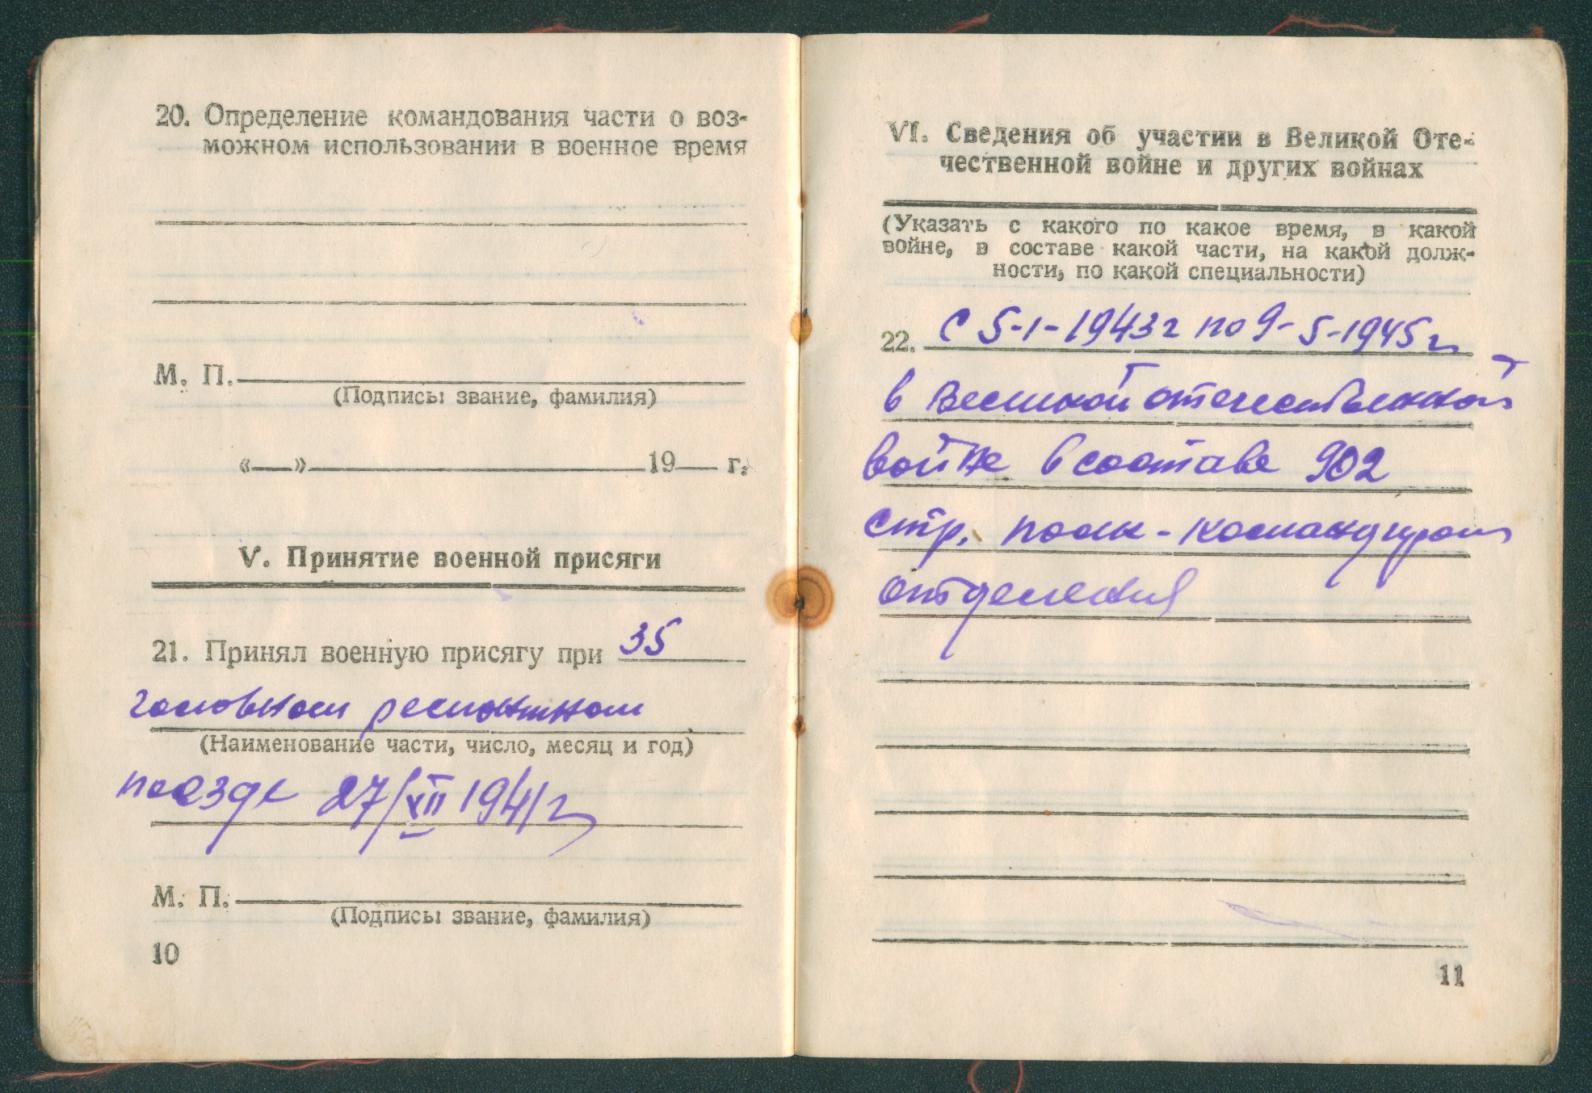 20. Определение командования части о воз-
можном использовании в военное время
М. П.
(Подпись: звание, фамилия)
«—» 19— г.
V. Принятие военной присяги
21. Принял военную присягу при 35
головном ремонтном
(Наименование части, число, месяц и год)
поезде 27/XII 1941 г
М. П.
(Подпись: звание, фамилия)
10
VI. Сведения об участии в Великой Оте-
чественной войне и других войнах
(Указать с какого по какое время, в какой
войне, в составе какой части, на какой долж-
ности, по какой специальности)
22. С 5-1-1943 г по 9-5-1945 г
в Великой отечественной
войне в составе 902
стр. полк - командиром
отделения
11